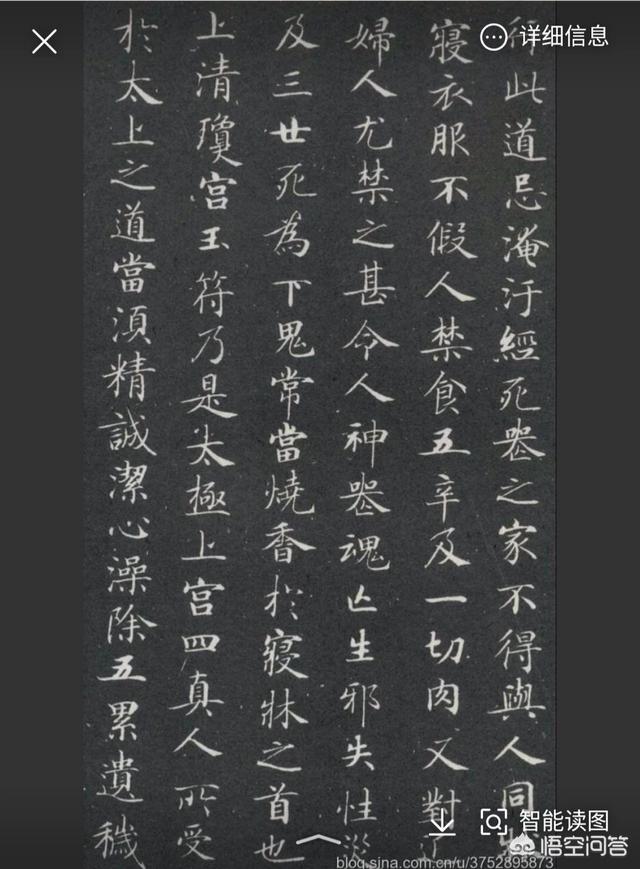 详细信息
行此道忌淹汙經死喪之家不得與人同
寢衣服不假人禁食五辛及一切肉又對
婦人尤禁之甚令人神喪魂亡生邪失性災
及三世死為下鬼常當燒香於寢牀之首也
上清瓊宮玉符乃是太極上宮四真人所受
於太上之道當須精誠潔心澡除五累遺穢
智能读图
悟空问答
blog.sina.com.cn/u/3752895873